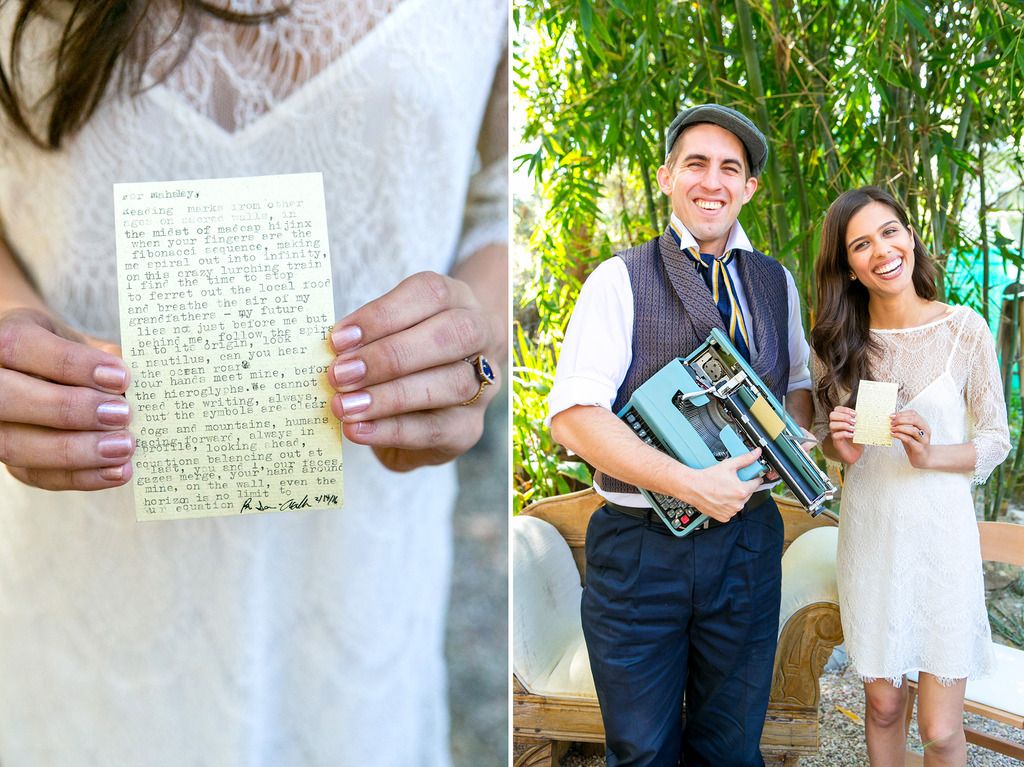 For Mahaley,
Reading marks from other
ages on sacred walls, in
the midst of madcap hijinx
when your fingers are the
fibonacci sequence, making
me spiral out into infinity,
on this crazy lurching train
I find the time to stop
to ferret out the local food
and breathe the air of my
grandfathers - my future
lies not just before me but
behind me, follow the spira
in to its origin, look
a nautilus, can you hear
the ocean roar?
Your hands meet mine, before
the hieroglyphs. We cannot
read the writing, always,
but the symbols are clear
dogs and mountains, humans
facing forward, always in
profile, looking ahead,
equations balancing out at
last, you and I, our faces
gazes merge, your hand around
mine, on the wall, even the
horizon is no limit to
our equation
2/14/16